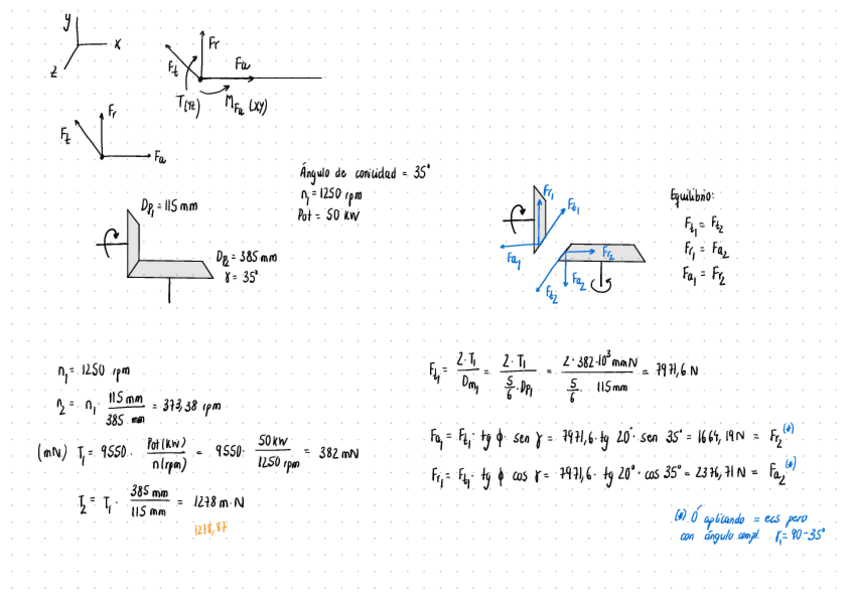 y
x
z
Fr
Ft
Fa
T(yz)
M_Fa (xy)
Fr
Ft
Fa
Ángulo de conicidad = 35°
n₁ = 1250 rpm
Pot = 50 kW
Dp₁ = 115 mm
Dp₂ = 385 mm
γ = 35°
Fr₁
Ft₁
Fa₁
Fr₂
Fa₂
Ft₂
Equilibrio:
Ft₁ = Ft₂
Fr₁ = Fa₂
Fa₁ = Fr₂
n₁ = 1250 rpm
n₂ = n₁ · 115 mm / 385 mm = 373,38 rpm
(mN) T₁ = 9550 · Pot(kW) / n(rpm) = 9550 · 50 kW / 1250 rpm = 382 mN
T₂ = T₁ · 385 mm / 115 mm = 1278 m·N
1278,87
Ft₁ = 2·T₁ / Dm₁ = 2·T₁ / (5/6 · Dp₁) = 2·382·10³ mmN / (5/6 · 115 mm) = 7971,6 N
Fa₁ = Ft₁ · tg ϕ · sen γ = 7971,6 · tg 20° · sen 35° = 1664,19 N = Fr₂ (*)
Fr₁ = Ft₁ · tg ϕ cos γ = 7971,6 · tg 20° · cos 35° = 2376,71 N = Fa₂ (*)
(*) Ó aplicando = ecs pero
con ángulo compl. γ₁ = 90-35°